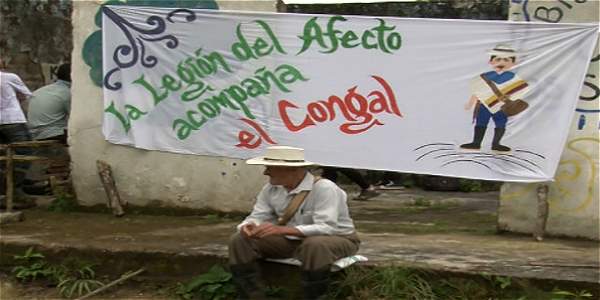 La Legión del Afecto
acompaña
el Congal